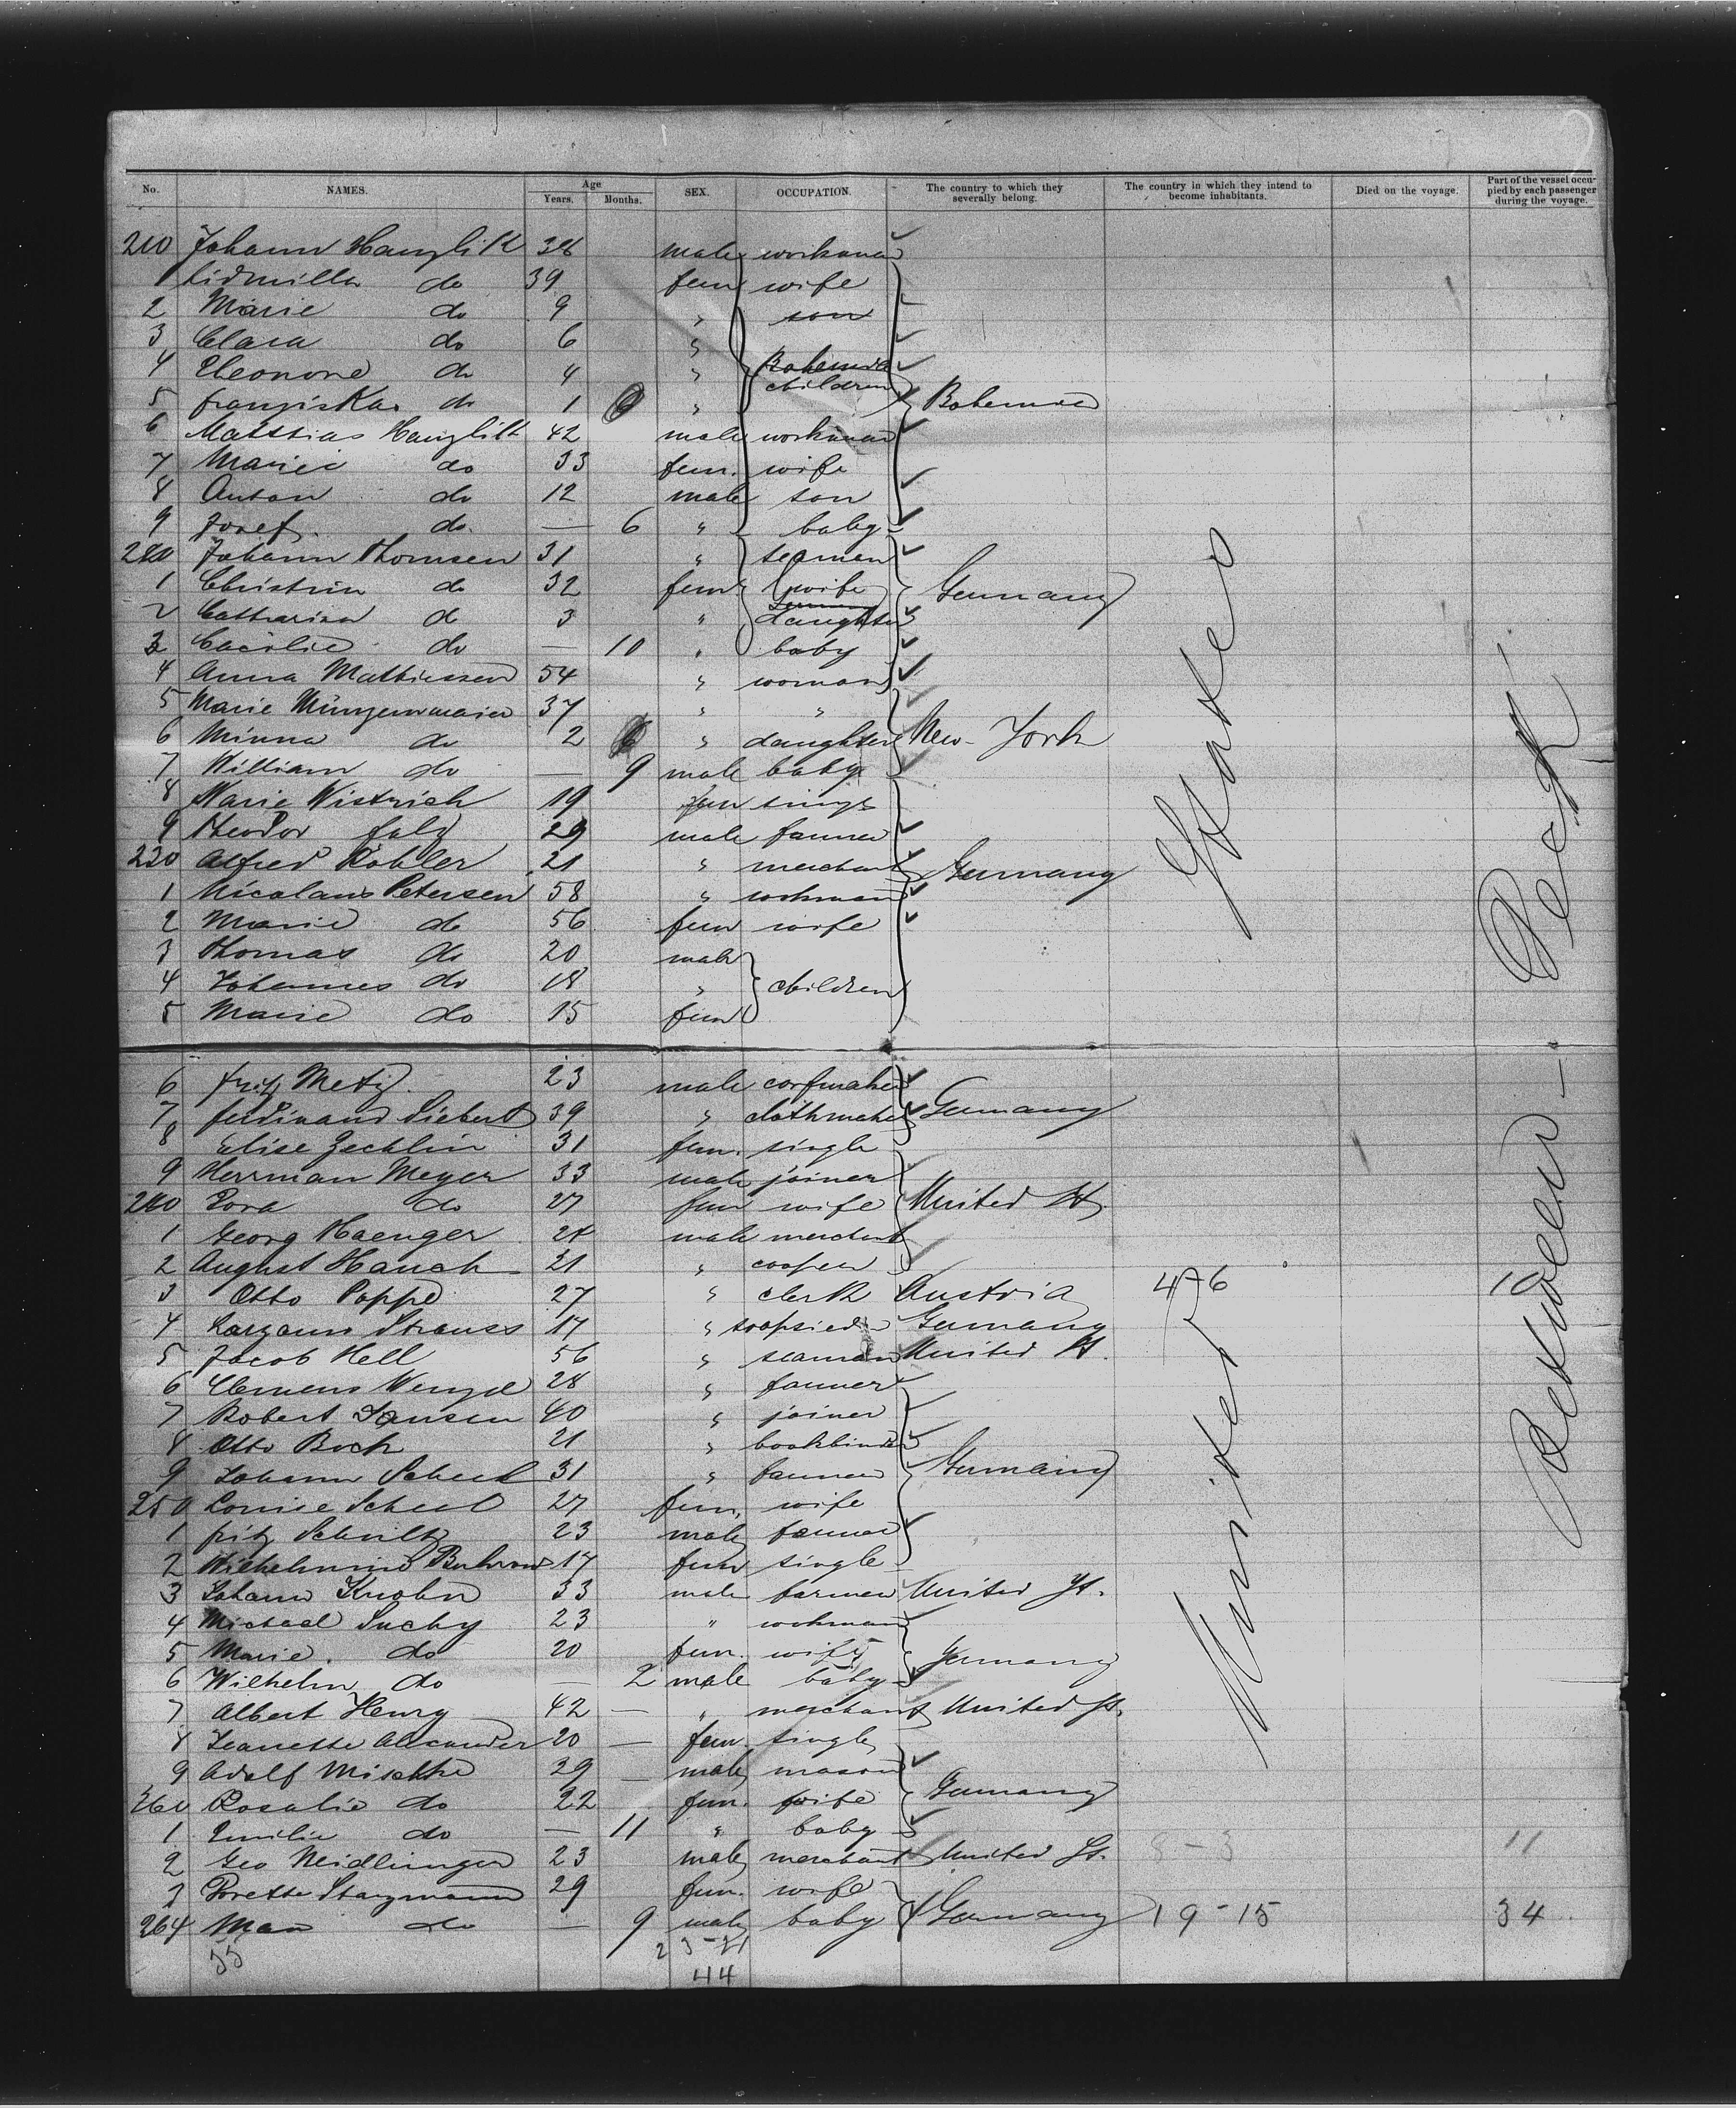 No. NAMES. Age Years. Months. SEX. OCCUPATION. The country to which they severally belong. The country in which they intend to become inhabitants. Died on the voyage. Part of the vessel occupied by each passenger during the voyage.
210 Johann Hanzlik 38 male workman
1 Lidmilla do 39 fem wife
2 Marie do 9 " son
3 Clara do 6 "
4 Eleonore do 4 " Bohemia children
5 Franziska do 1 " Bohemia
6 Matthias Hanzlik 42 male workman
7 Marie do 33 fem. wife
8 Anton do 12 male son
9 Josef do. — 6 " baby
220 Johann Thomsen 31 " seaman
1 Christin do 32 fem wife Germany
2 Catharina do 3 " daughter
3 Cacilie do — 10 " baby
4 Anna Mathiessen 54 " woman
5 Marie Münzenmaier 37 " "
6 Minna do 2 " daughter New-York
7 William do — 9 male baby
8 Marie Wistrich 19 fem single
9 Theodor Falz 29 male farmer
230 Alfred Kohler 21 " merchant Germany
1 Nicolaus Petersen 58 " workman
2 Marie do 56 fem wife
3 Thomas do 20 male
4 Johannes do 18 " children
5 Marie do 15 fem
6 Fritz Metz. 23 male
7 Ferdinand Siebert 39 " clothmaker Germany
8 Elise Zechlin 31 fem. single
9 Herrman Meyer 33 male joiner
240 Dora do 27 fem wife United St.
1 Georg Haenger 24 male merchant
2 August Hauch 21 " cooper
3 Otto Poppe 27 " clerk Austria 4-6 10
4 Strauss 17 " soapsieder Germany
5 Jacob Hell 56 " seaman United St.
6 Clemens Wenzel 28 " farmer
7 Robert Jansen 40 " joiner
8 Otto Bock 21 " bookbinder
9 Johann Scheel 31 " farmer Germany
250 Louise Scheel 27 fem. wife
1 Fritz Schultz 23 male farmer
2 Wilhelmine 17 fem single
3 Johann Knohn 33 male farmer United St.
4 Michael Suchy 23 " workman
5 Marie. do 20 fem. wife Germany
6 Wilhelm do — 2 male baby
7 Albert Henry 42 — " merchant United St.
8 Jeanette Alexander 20 — fem. single
9 Adolf Mischke 29 — male mason
260 Rosalie do 22 fem. wife Germany
1 Emilie do — 11 " baby
2 Geo Neidlinger 23 male merchant United St. 8-3 11
3 Dorette Stargmann 29 fem. wife
264 Max do — 9 male baby Germany 19-15 34
55 23-21
44
United States
Between-Deck